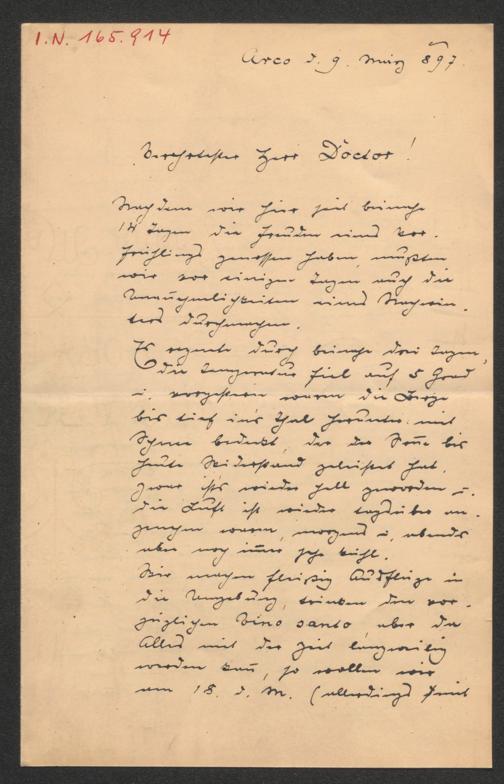 I.N. 165.914
Arco d. 9. März 897.
Verehrtester Herr Doctor!
Nachdem wir hier seit beinahe
14 Tagen die Freuden eines Vor-
frühlings genossen haben, mußten
wir vor einigen Tagen auch die
Unannehmlichkeiten eines Nachwin-
ters durchmachen.
Es regnete durch beinahe drei Tage,
die Temperatur fiel auf 5 Grad
u. vorgestern waren die Berge
bis tief in's Thal herunter mit
Schnee bedeckt, der der Soñe bis
heute Widerstand geleistet hat.
Zwar ist's wieder hell geworden u.
die Luft ist wieder tagsüber an-
genehm warm, morgens u. abends
aber noch im̄er sehr kühl.
Wir machen fleißig Ausflüge in
die Umgebung, trinken den vor-
züglichen Vino santo, aber da
Alles mit der Zeit langweilig
werden kañ, so wollen wir
am 18. d. M. (allerdings